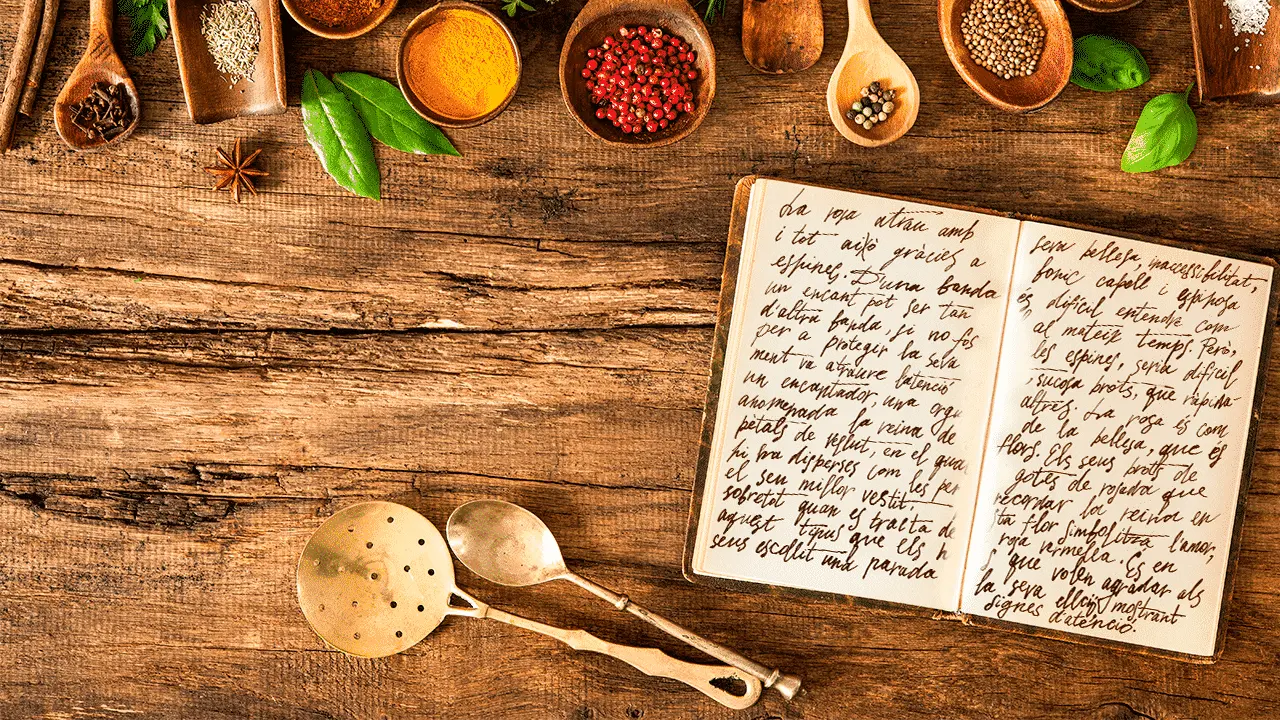 La rosa atrau amb
i tot això gràcies a
espines. D'una banda
un encant pot ser tan
d'altra banda, si no fos
per a protegir la seva
ment va atraure l'atenció
un encantador, una orgu
anomenada la reina de
pètals de vellut, en el qual
hi ha disperses com les per
el seu millor vestit.
sobretot quan es tracta de
aquest tipus que els h
seus escollit una parada
seva bellesa, inaccessibilitat,
tonic capell i espinosa
és difícil entendre com
al mateix temps. Però,
les espines, seria difícil
, sucosa brots, que ràpida-
altres. La rosa és com
de la bellesa, que és
flors. Els seus brots de
gotes de rosada que
recordar la reina en
sta flor simbolitza l'amor,
roja vermella. És en
s que volen agradar als
la seva elecció mostrant
signes d'atenció.